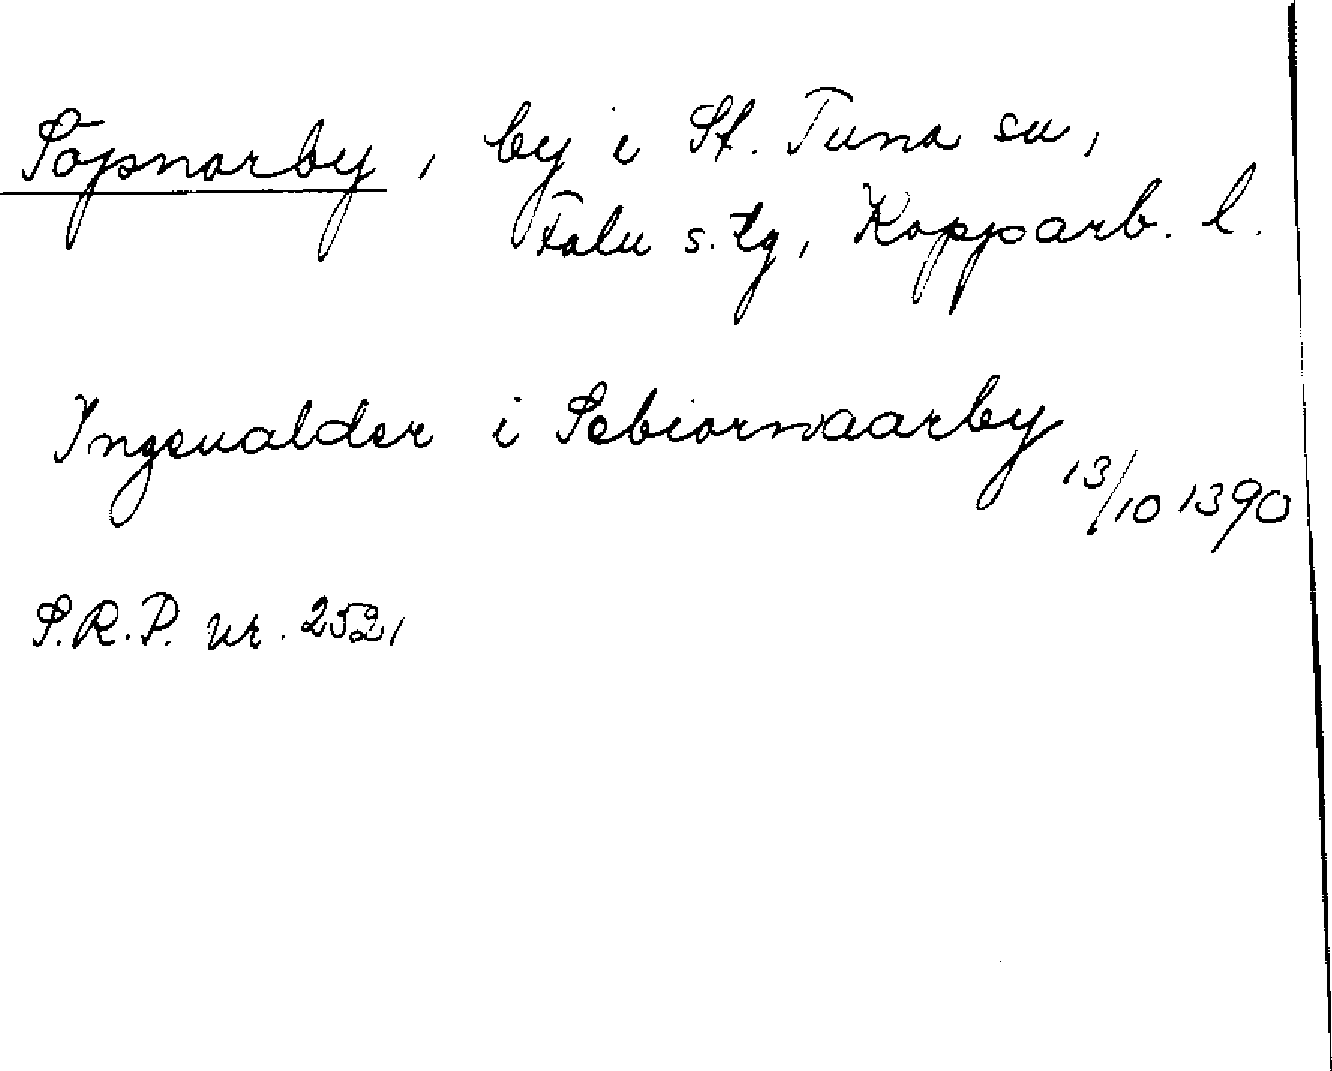 Töpnarby, by i St. Tuna sn,
Falu s. tg, Kopparb. l.
Ingeualder i Sebiornaarby
13/10 1390
S.R.P. nr. 2521